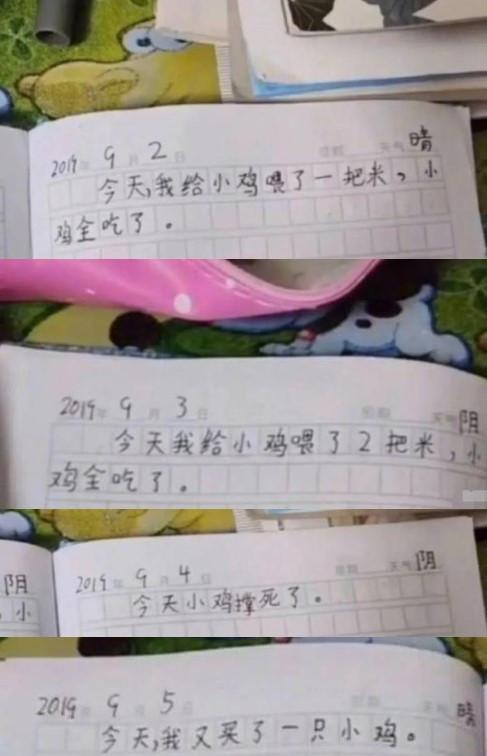 2019年 9月 2日 星期 天气 晴
今天,我给小鸡喂了一把米,小
鸡全吃了。
2019年 9月 3日 星期 天气 阴
今天我给小鸡喂了2把米,小
鸡全吃了。
阴
小
2019年 9月 4日 星期 天气 阴
今天小鸡撑死了。
2019年 9月 5日 晴
今天,我又买了一只小鸡。